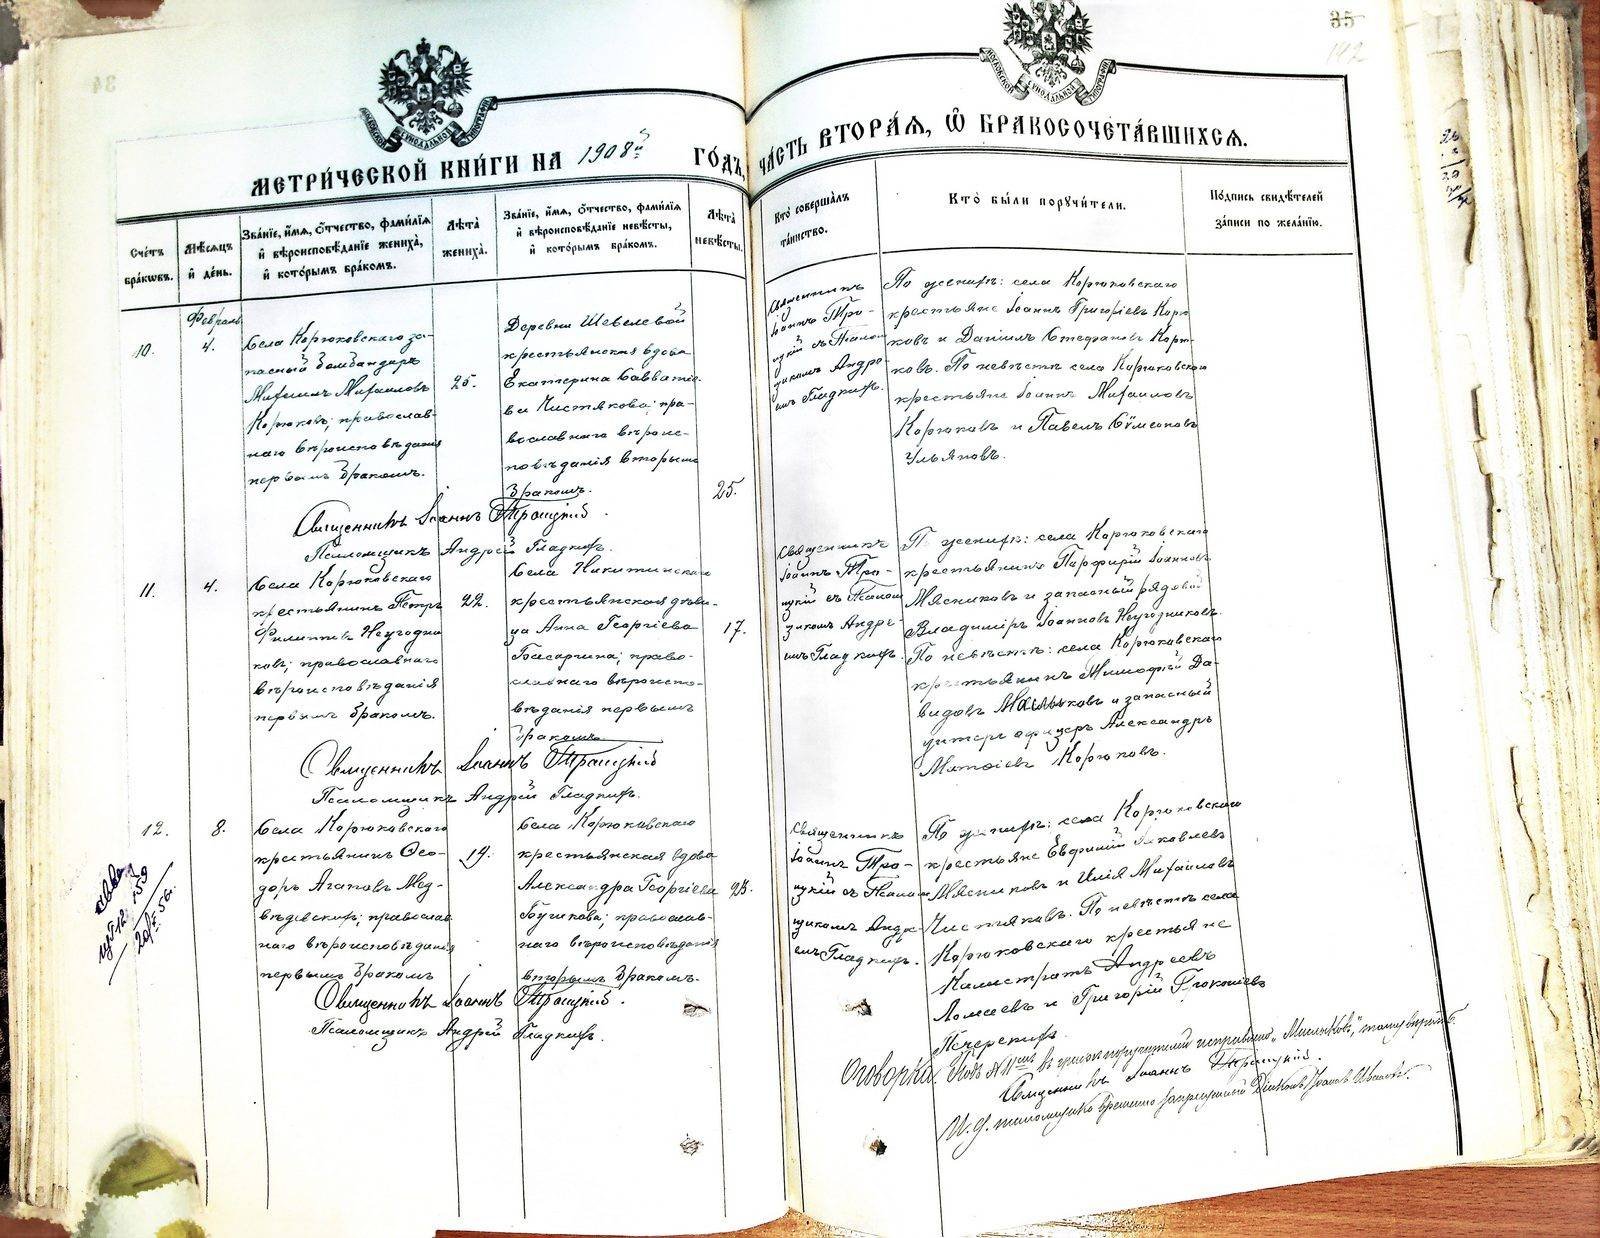 35
142
34
МОСКОВСКОЙ СѴНОДАЛЬНОЙ ТИПОГРАФІИ
МОСКОВСКОЙ СѴНОДАЛЬНОЙ ТИПОГРАФІИ
МЕТРИ́ЧЕСКОЙ КНИ́ГИ НА 1908й ГО́ДЪ, ЧА́СТЬ ВТОРА́Я, Ѽ БРАКОСОЧЕТА́ВШИХСЯ.
Сче́тъ бра́кѡвъ.
Мѣ́сяцъ и де́нь.
Зва́нїе, и́мя, о́тчество, фами́лїя
и вѣроисповѣ́данїе жениха̀,
и кото́рымъ бра́комъ.
Лѣта̀ жениха̀.
Зва́нїе, и́мя, о́тчество, фами́лїя
и вѣроисповѣ́данїе невѣ́сты,
и кото́рымъ бра́комъ.
Лѣта̀ невѣ́сты.
Кто̀ соверша́лъ
та́инство.
Кто̀ бы́ли поручи́тели.
По́дпись свидѣ́телей
за́писи по жела́нїю.
10.
Февраль
4.
Села Корюковскаго за-
пасный бомбандиръ
Михаилъ Михаиловъ
Корюковъ; православ-
наго вѣроисповѣданія
первымъ бракомъ.
25.
Деревни Шевелевой
крестьянская вдова
Екатерина Савватіе-
ва Чистякова; пра-
вославнаго вѣроис-
повѣданія вторымъ
бракомъ.
25.
Священникъ
Іоаннъ Тро-
ицкій съ Псалом-
щикомъ Андре-
емъ Гладкихъ.
По женихѣ: села Корюковскаго
крестьяне Іоаннъ Григоріевъ Корю
ковъ и Даніилъ Стефановъ Корю-
ковъ. По невѣстѣ села Корюковскаго
крестьяне Іоаннъ Михаиловъ
Корюковъ и Павелъ Сѵмеоновъ
Ульяновъ.
Священникъ Іоаннъ Троицкій.
Псаломщикъ Андрей Гладкихъ.
11.
4.
Села Корюковскаго
крестьянинъ Петръ
Филипповъ Неугодни
ковъ; православнаго
вѣроисповѣданія
первымъ бракомъ.
22.
Села Никитинскаго
крестьянская дѣви-
ца Анна Георгіева
Басаргина; право-
славнаго вѣроиспо-
вѣданія первымъ
бракомъ
17.
Священникъ
Іоаннъ Тро-
ицкій съ Псалом
щикомъ Андре-
емъ Гладкихъ.
По женихѣ: села Корюковскаго
крестьянинъ Парфирій Іоанновъ
Мясниковъ и запасный рядовой
Владиміръ Іоанновъ Неугодниковъ.
По невѣстѣ: села Корюковскаго
крестьянинъ Тимофей Да-
видовъ Мыльковъ и запасный
унтеръ офицеръ Александръ
Матѳіевъ Корюковъ.
Священникъ Іоаннъ Троицкій
Псаломщикъ Андрей Гладкихъ.
12.
8.
Села Корюковскаго
крестьянинъ Ѳео-
доръ Агаповъ Мед-
вѣдевскихъ; православ
наго вѣроисповѣданія
первымъ бракомъ
19.
Села Корюковскаго
крестьянская вдова
Александра Георгіева
Бушкова; православ-
наго вѣроисповѣданія
вторымъ бракомъ.
23.
Священникъ
Іоаннъ Тро-
ицкій съ Псалом
щикомъ Андре-
емъ Гладкихъ.
По женихѣ: села Корюковскаго
крестьяне Евфимій Іаковлевъ
Мясниковъ и Илія Михаиловъ
Чистяковъ. По невѣстѣ села
Корюковскаго крестьяне
Калистратъ Андреевъ
и Григорій Прокопіевъ
Печерскихъ
Священникъ Іоаннъ Троицкій.
Псаломщикъ Андрей Гладкихъ.
Оговорка. Подъ №11мъ въ графѣ поручителей исправлено „Мыльковъ," тому вѣрить.
Священникъ Іоаннъ Троицкій.
И. д. псаломщика временно запрещенный Діаконъ Іоаннъ
159
56.